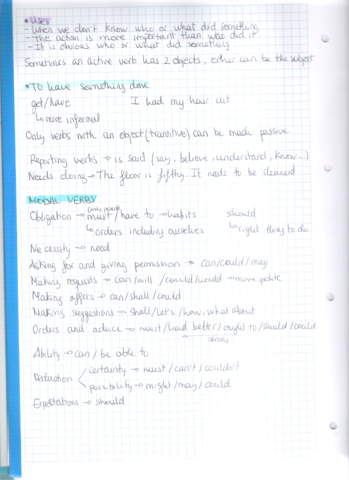 • Uses
- When we don't know who or what did something
- The action is more important than who did it
- It is obvious who or what did something
Sometimes an active verb has 2 objects, either can be the subject
• TO have something done
get/have I had my hair cut
↳ more informal
Only verbs with an object (transitive) can be made passive
Reporting verbs → is said (say, believe, understand, know...)
Needs doing → The floor is filthy. It needs to be cleaned
MODAL VERBS
Obligation → must/have to → habits should
↳ orders including ourselves ↳ right thing to do
Necessity → need
Asking for and giving permission → can/could/may
Making requests → can/will/could/would → more polite
Making offers → can/shall/could
Making suggestions → shall/let's/how, what about
Orders and advice → must/had better/ought to/should/could
strong
Ability → can/be able to
Deduction certainty → must/can't/couldn't
possibility → might/may/could
Expectations → should